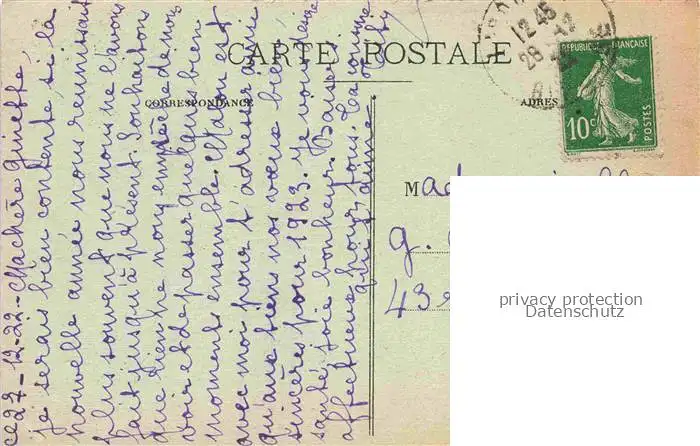 CARTE POSTALE
CORRESPONDANCE
ADRES
12 45
28
RÉPUBLIQUE FRANÇAISE
10c
POSTES
ce 27-12-22 - Ma chère Ginette,
je serais bien contente, si la
nouvelle année nous réunissait
plus souvent que nous ne l'avons
fait jusqu'à présent. Souhaitons
que rien ne nous empêche de nous
voir et de passer quelques bien
moments ensemble. Maman est
avec moi pour t'adresser ainsi
qu'aux tiens nos vœux bien
sincères pour 1923. Je vous désire
santé, joie bonheur. Baisers
affectueux pour tous.
qui t'aime
g.
43
privacy protection
Datenschutz